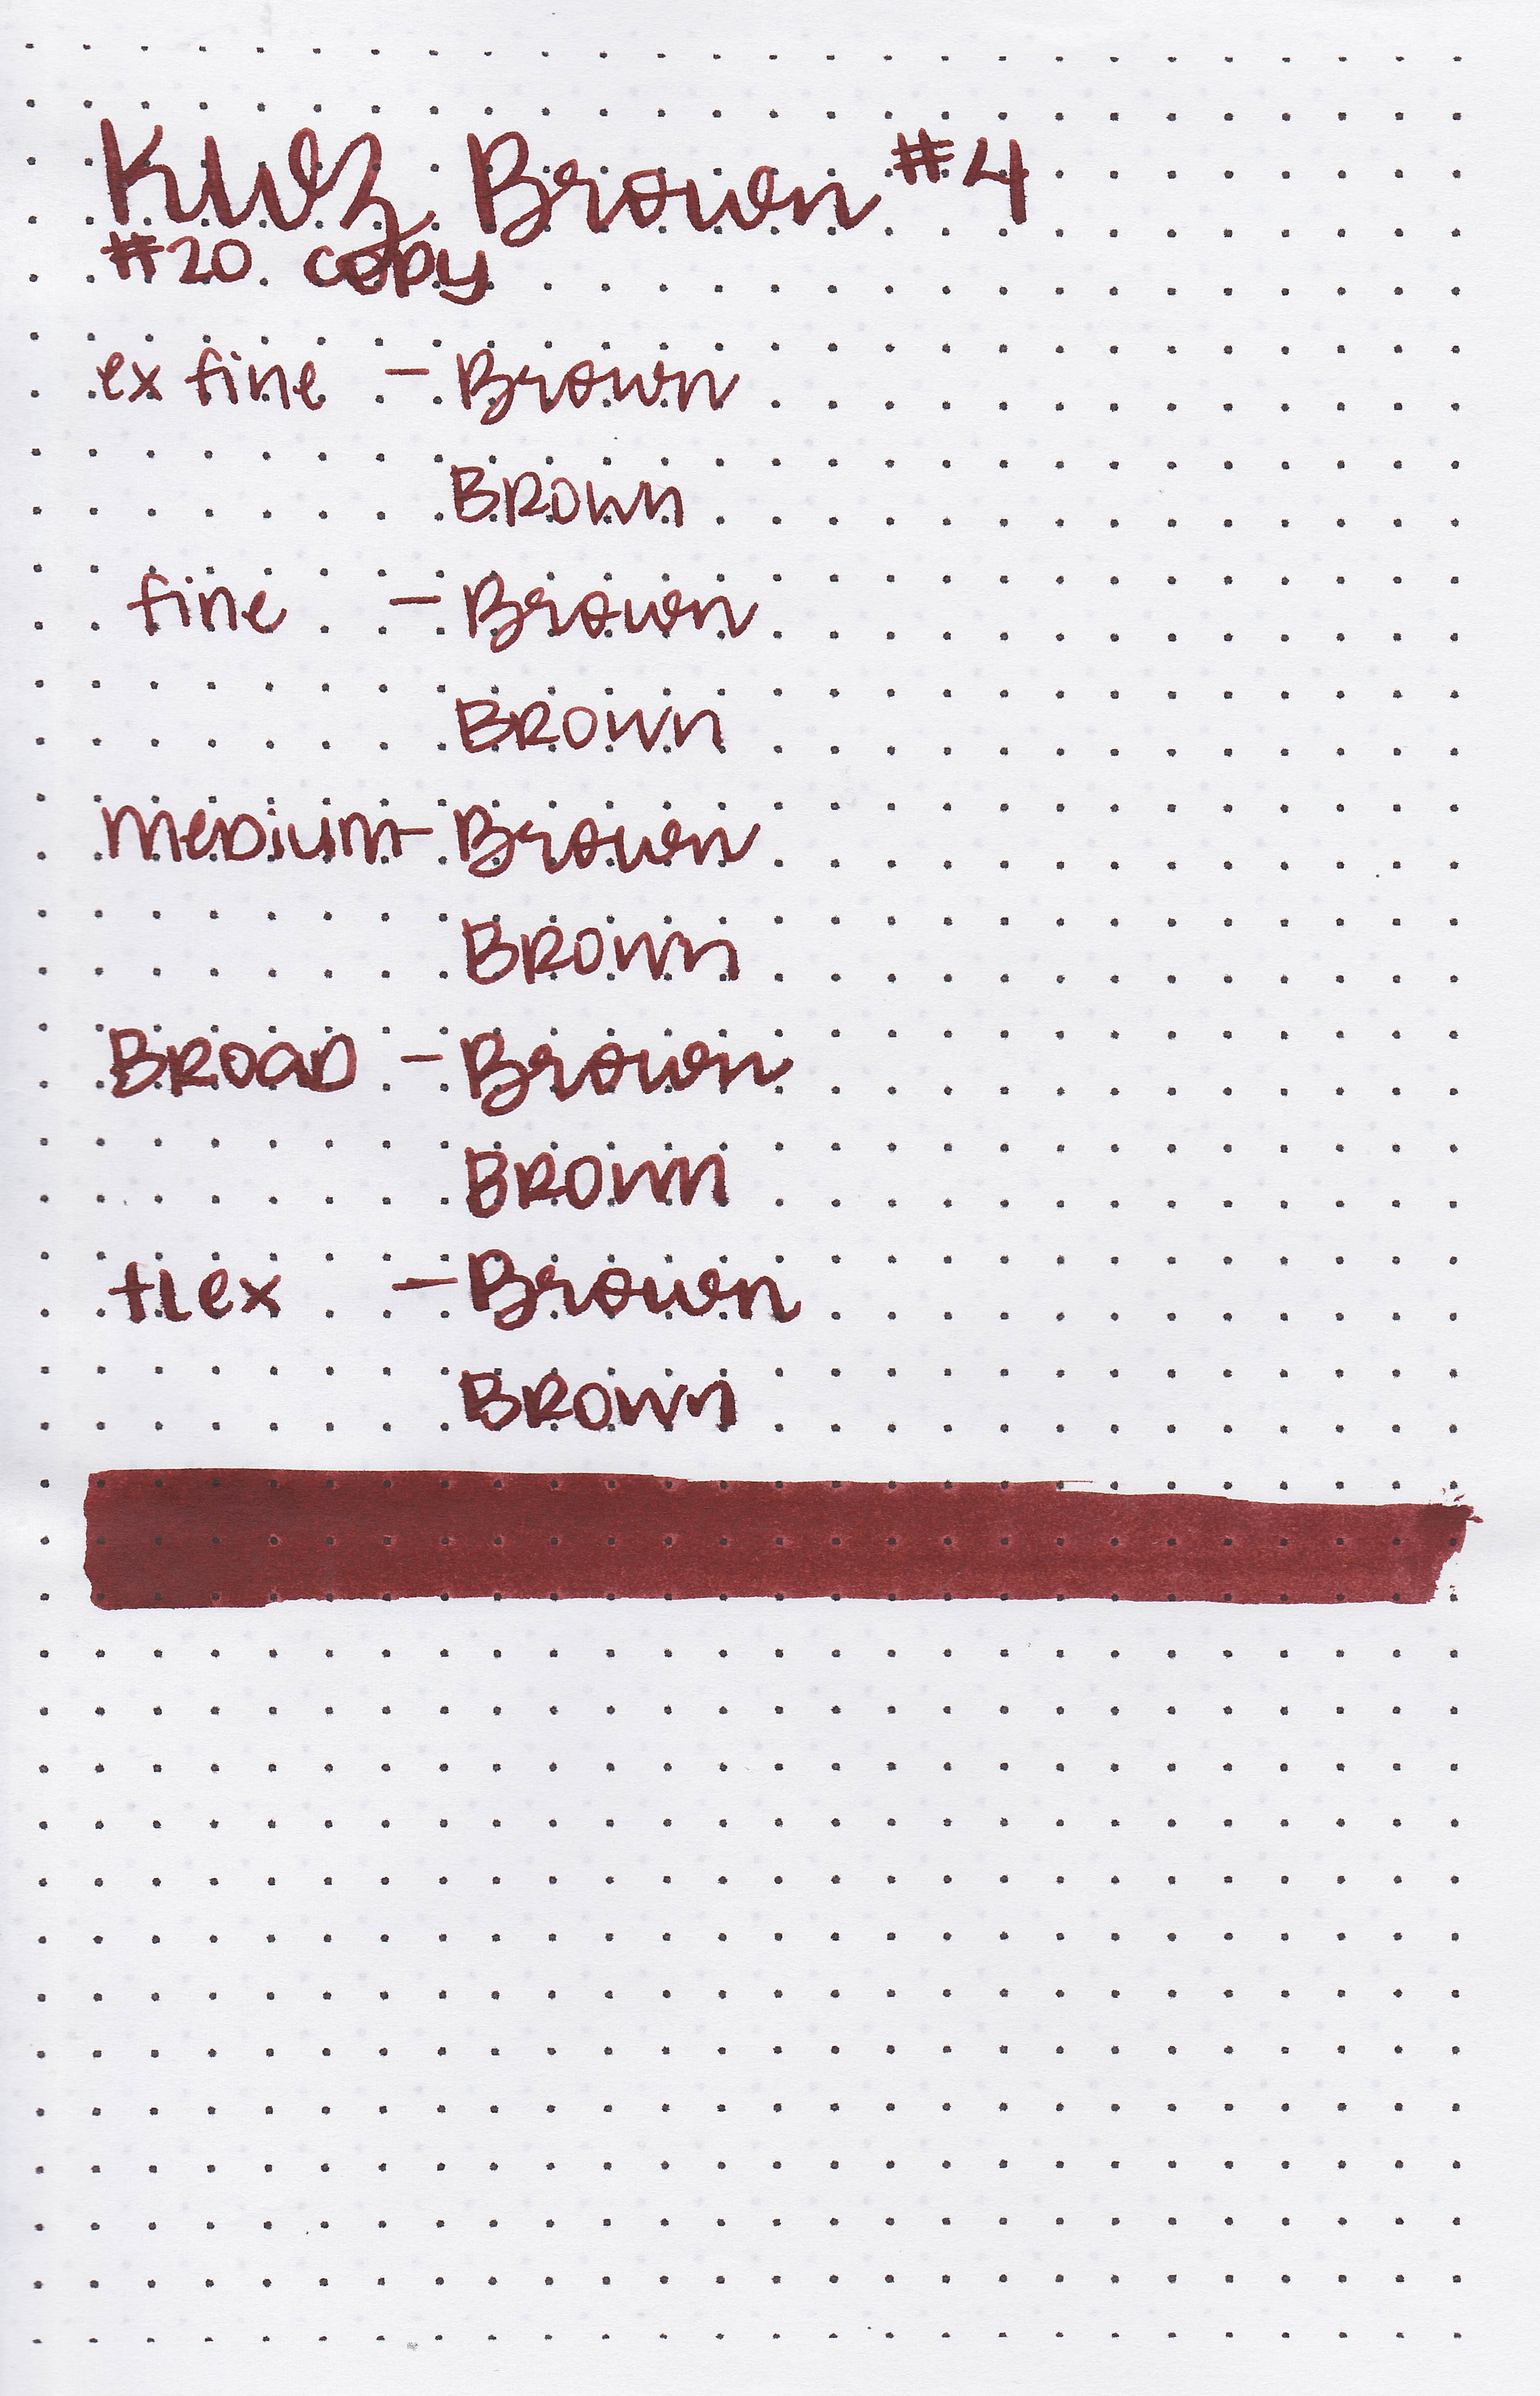 KWZ Brown #4
#20 copy
ex fine - Brown
BROWN
fine - Brown
BROWN
MEDIUM - Brown
BROWN
BROAD - Brown
BROWN
flex - Brown
BROWN